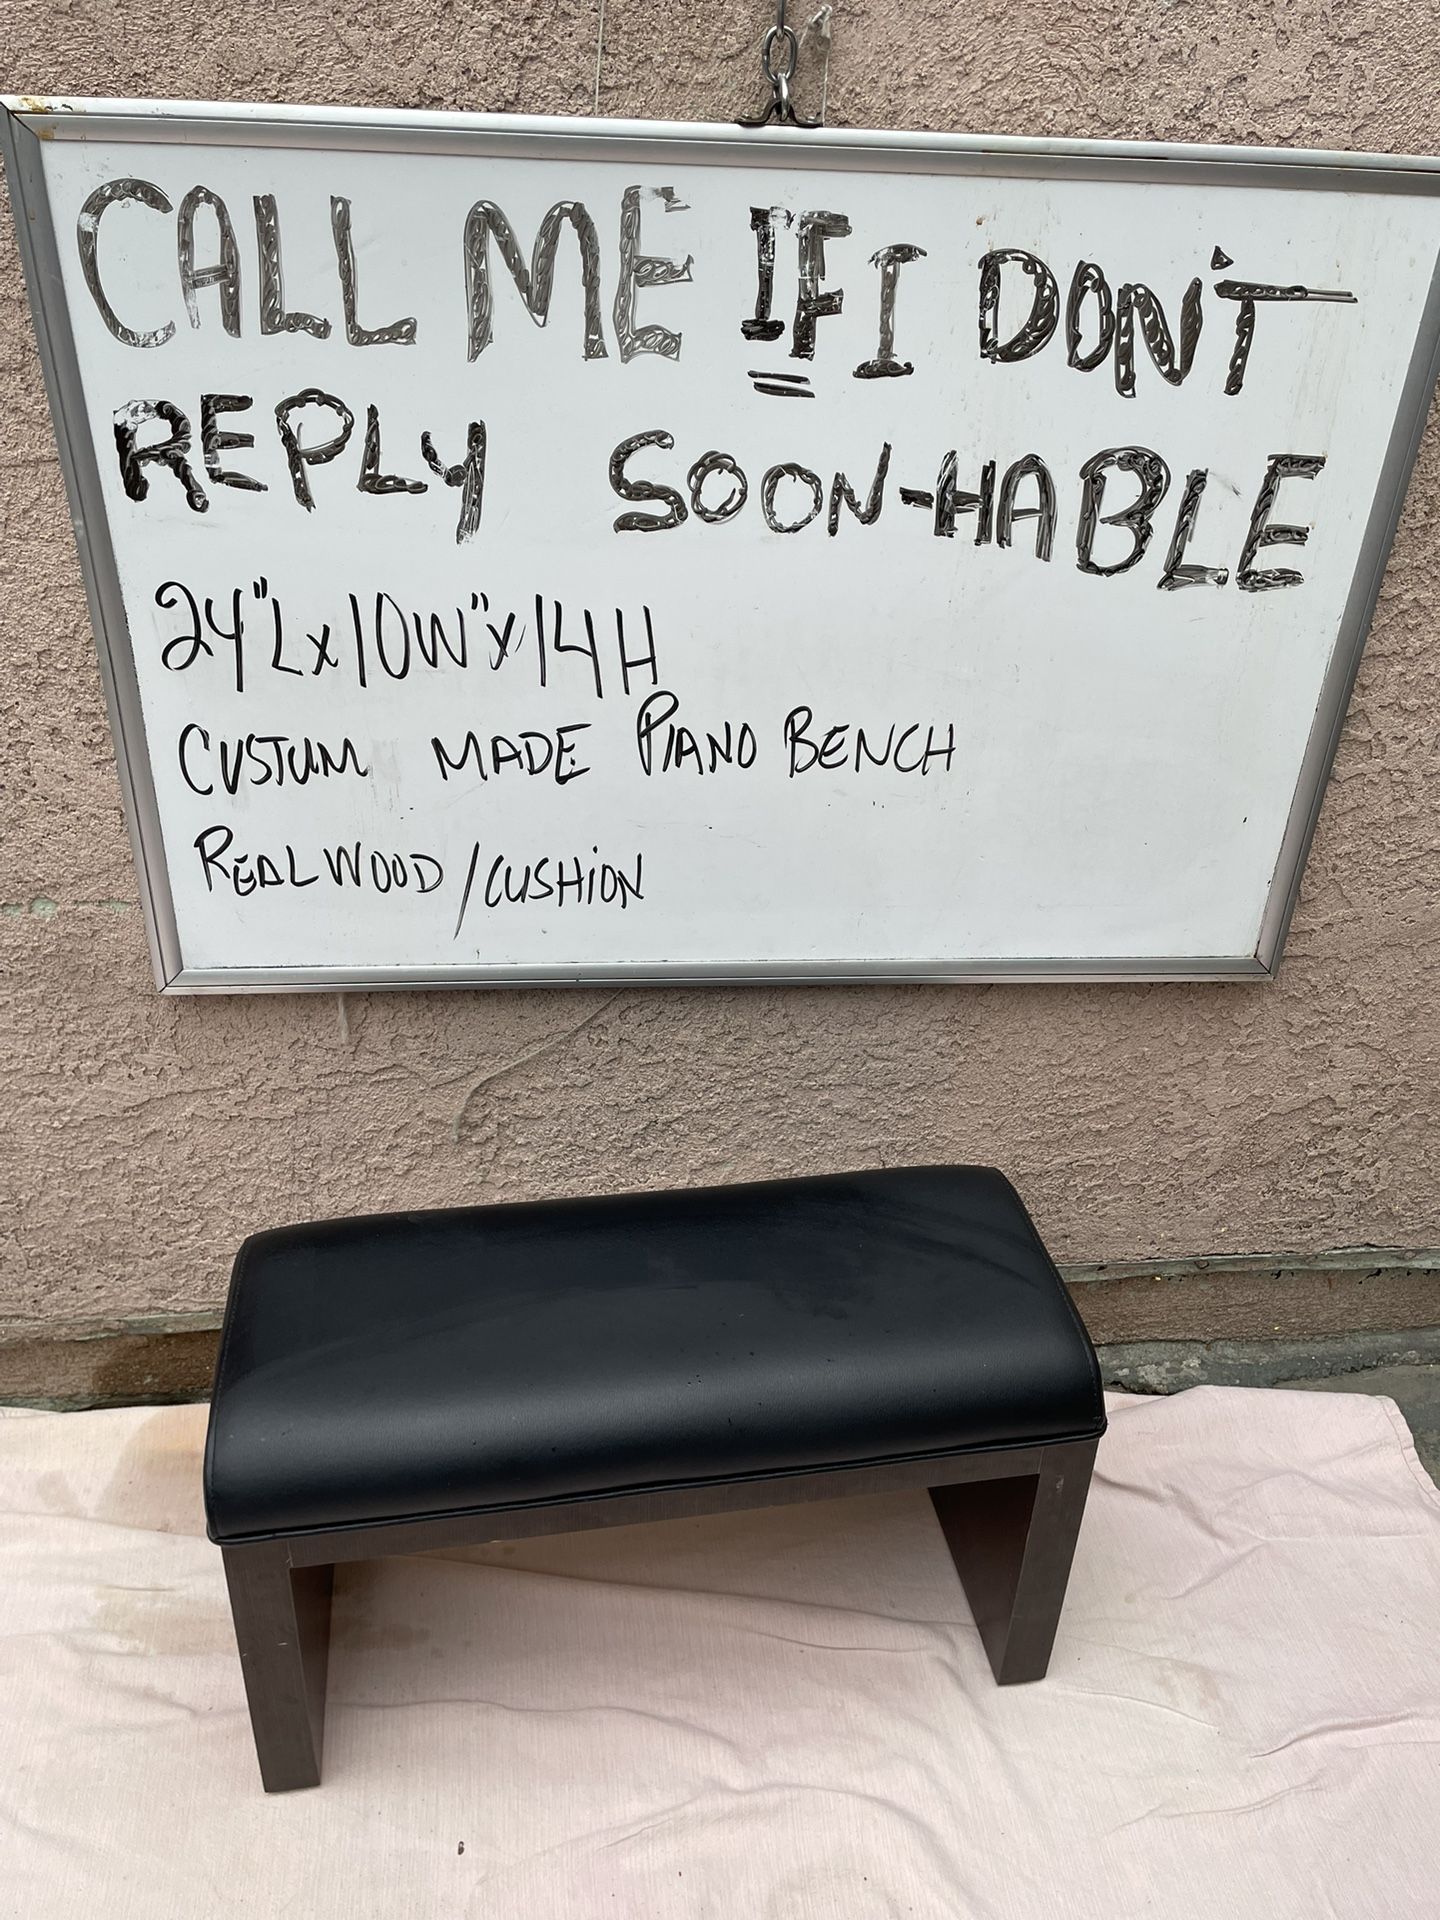 CALL ME IF I DON'T
REPLY SOON-HABLE
24"L x 10W" x 14H
CUSTUM MADE PIANO BENCH
REAL WOOD/CUSHION